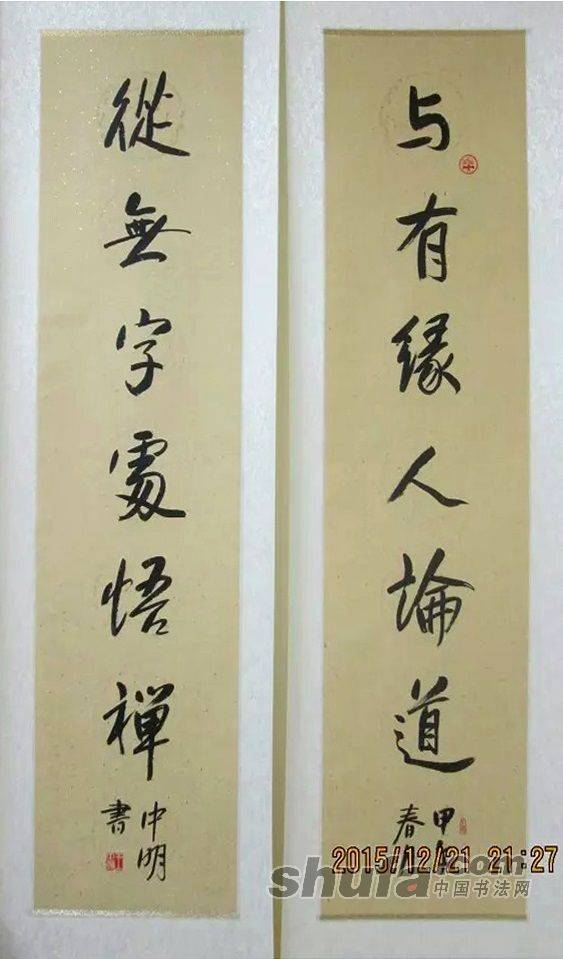 与有缘人論道
甲午
春月
從無字處悟禪
中明
書
2015/12/21 21:27
shufa.com
中国书法网